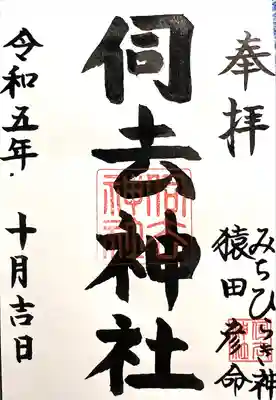 奉拝
みちひらき神
猿田彦命
伺去神社
令和五年
十月吉日